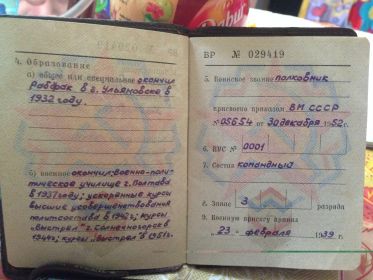 Dabur
4. Образование
а) общее или специальное окончил
Рабфак в г. Ульяновске в
1932 году.
б) военное окончил: военно-поли-
тическое училище г. Полтава
в 1937 году; ускоренные курсы
высшие усовершенствования
политсостава в 1942г; курсы
„Выстрел" г. Солнечногорск в
1944г; курсы „Выстрел" в 1951г.
ВР № 029419
5. Воинское звание полковник
присвоено приказом ВМ СССР
№ 05654 от 30 декабря 1952г.
6. ВУС № 0001
7. Состав командный
8. Запас 3 разряда
9. Военную присягу принял
" 23 " февраля 1939 г.